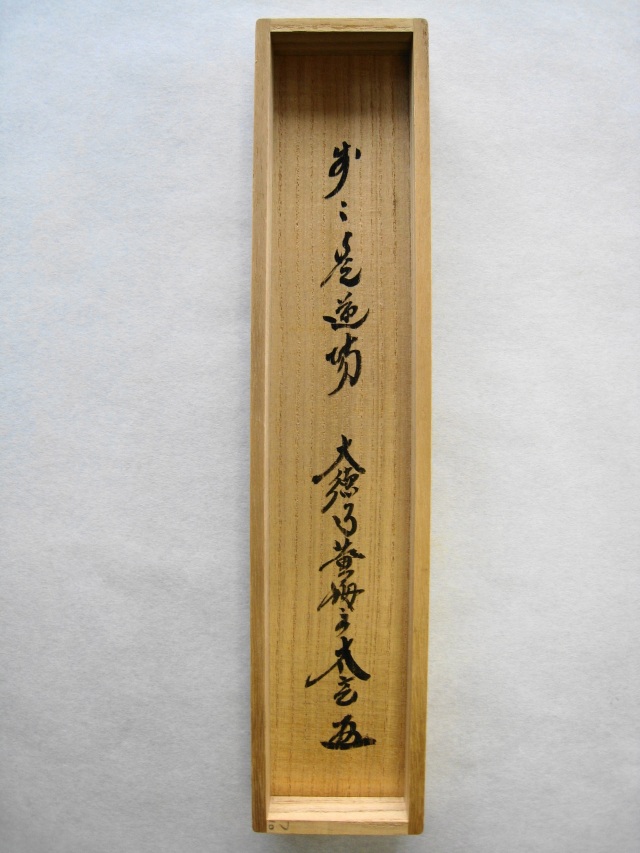 歩々是道場 大徳寺黄梅太玄